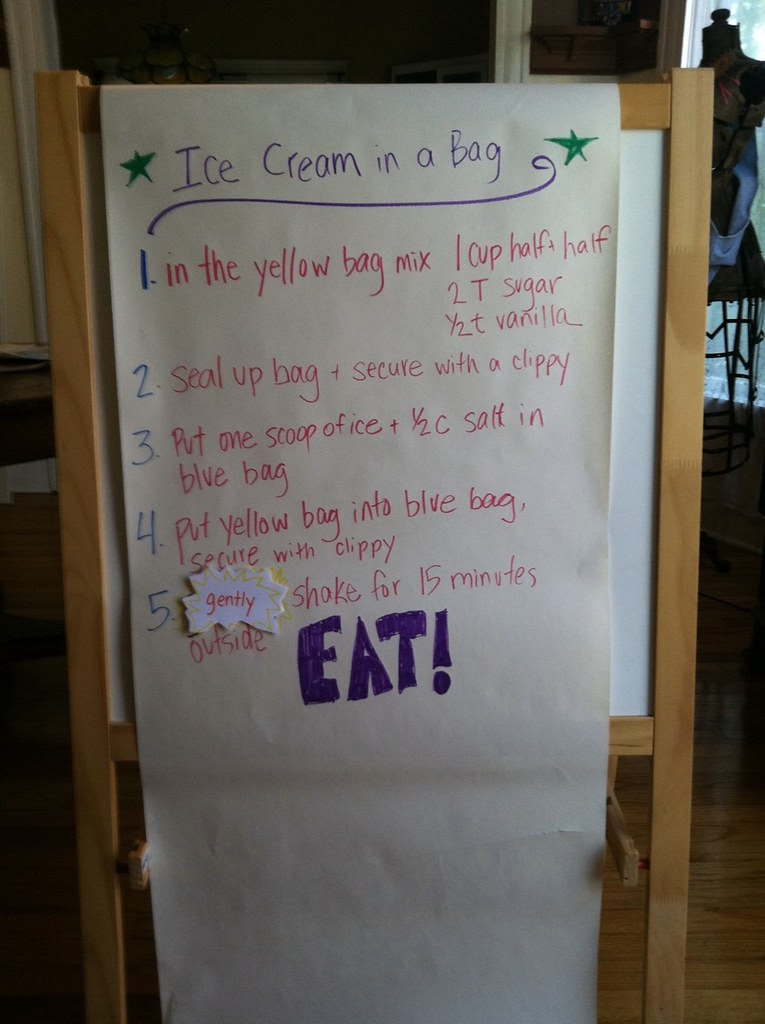 Ice Cream in a Bag
1. in the yellow bag mix 1 cup half + half
2 T sugar
½ t vanilla
2. seal up bag + secure with a clippy
3. Put one scoop of ice + ½ c salt in
blue bag
4. Put yellow bag into blue bag,
secure with clippy
5. gently shake for 15 minutes
outside
EAT!